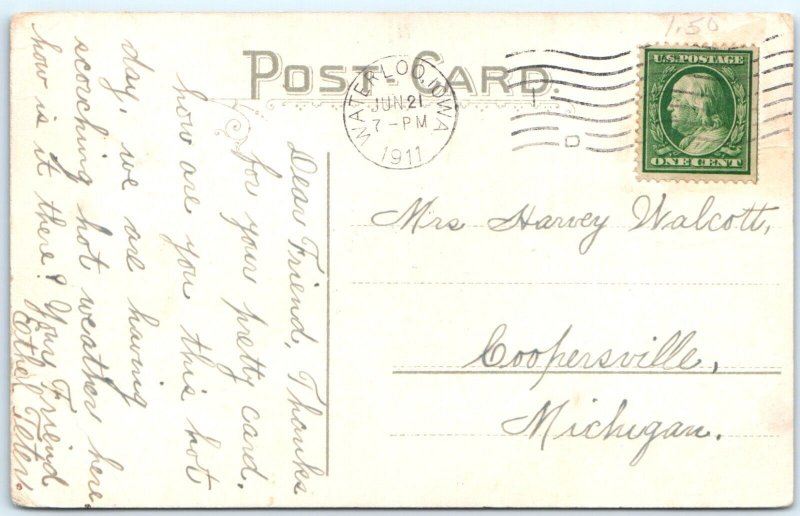 1.50
POST CARD.
WATERLOO, IOWA
JUN 21
7-PM
1911
U.S. POSTAGE
ONE CENT
Dear Friend, Thanks
for your pretty card.
how are you this hot
day, we are having
scorching hot weather here.
how is it there? Your Friend
Mrs Harvey Walcott,
Coopersville,
Michigan.